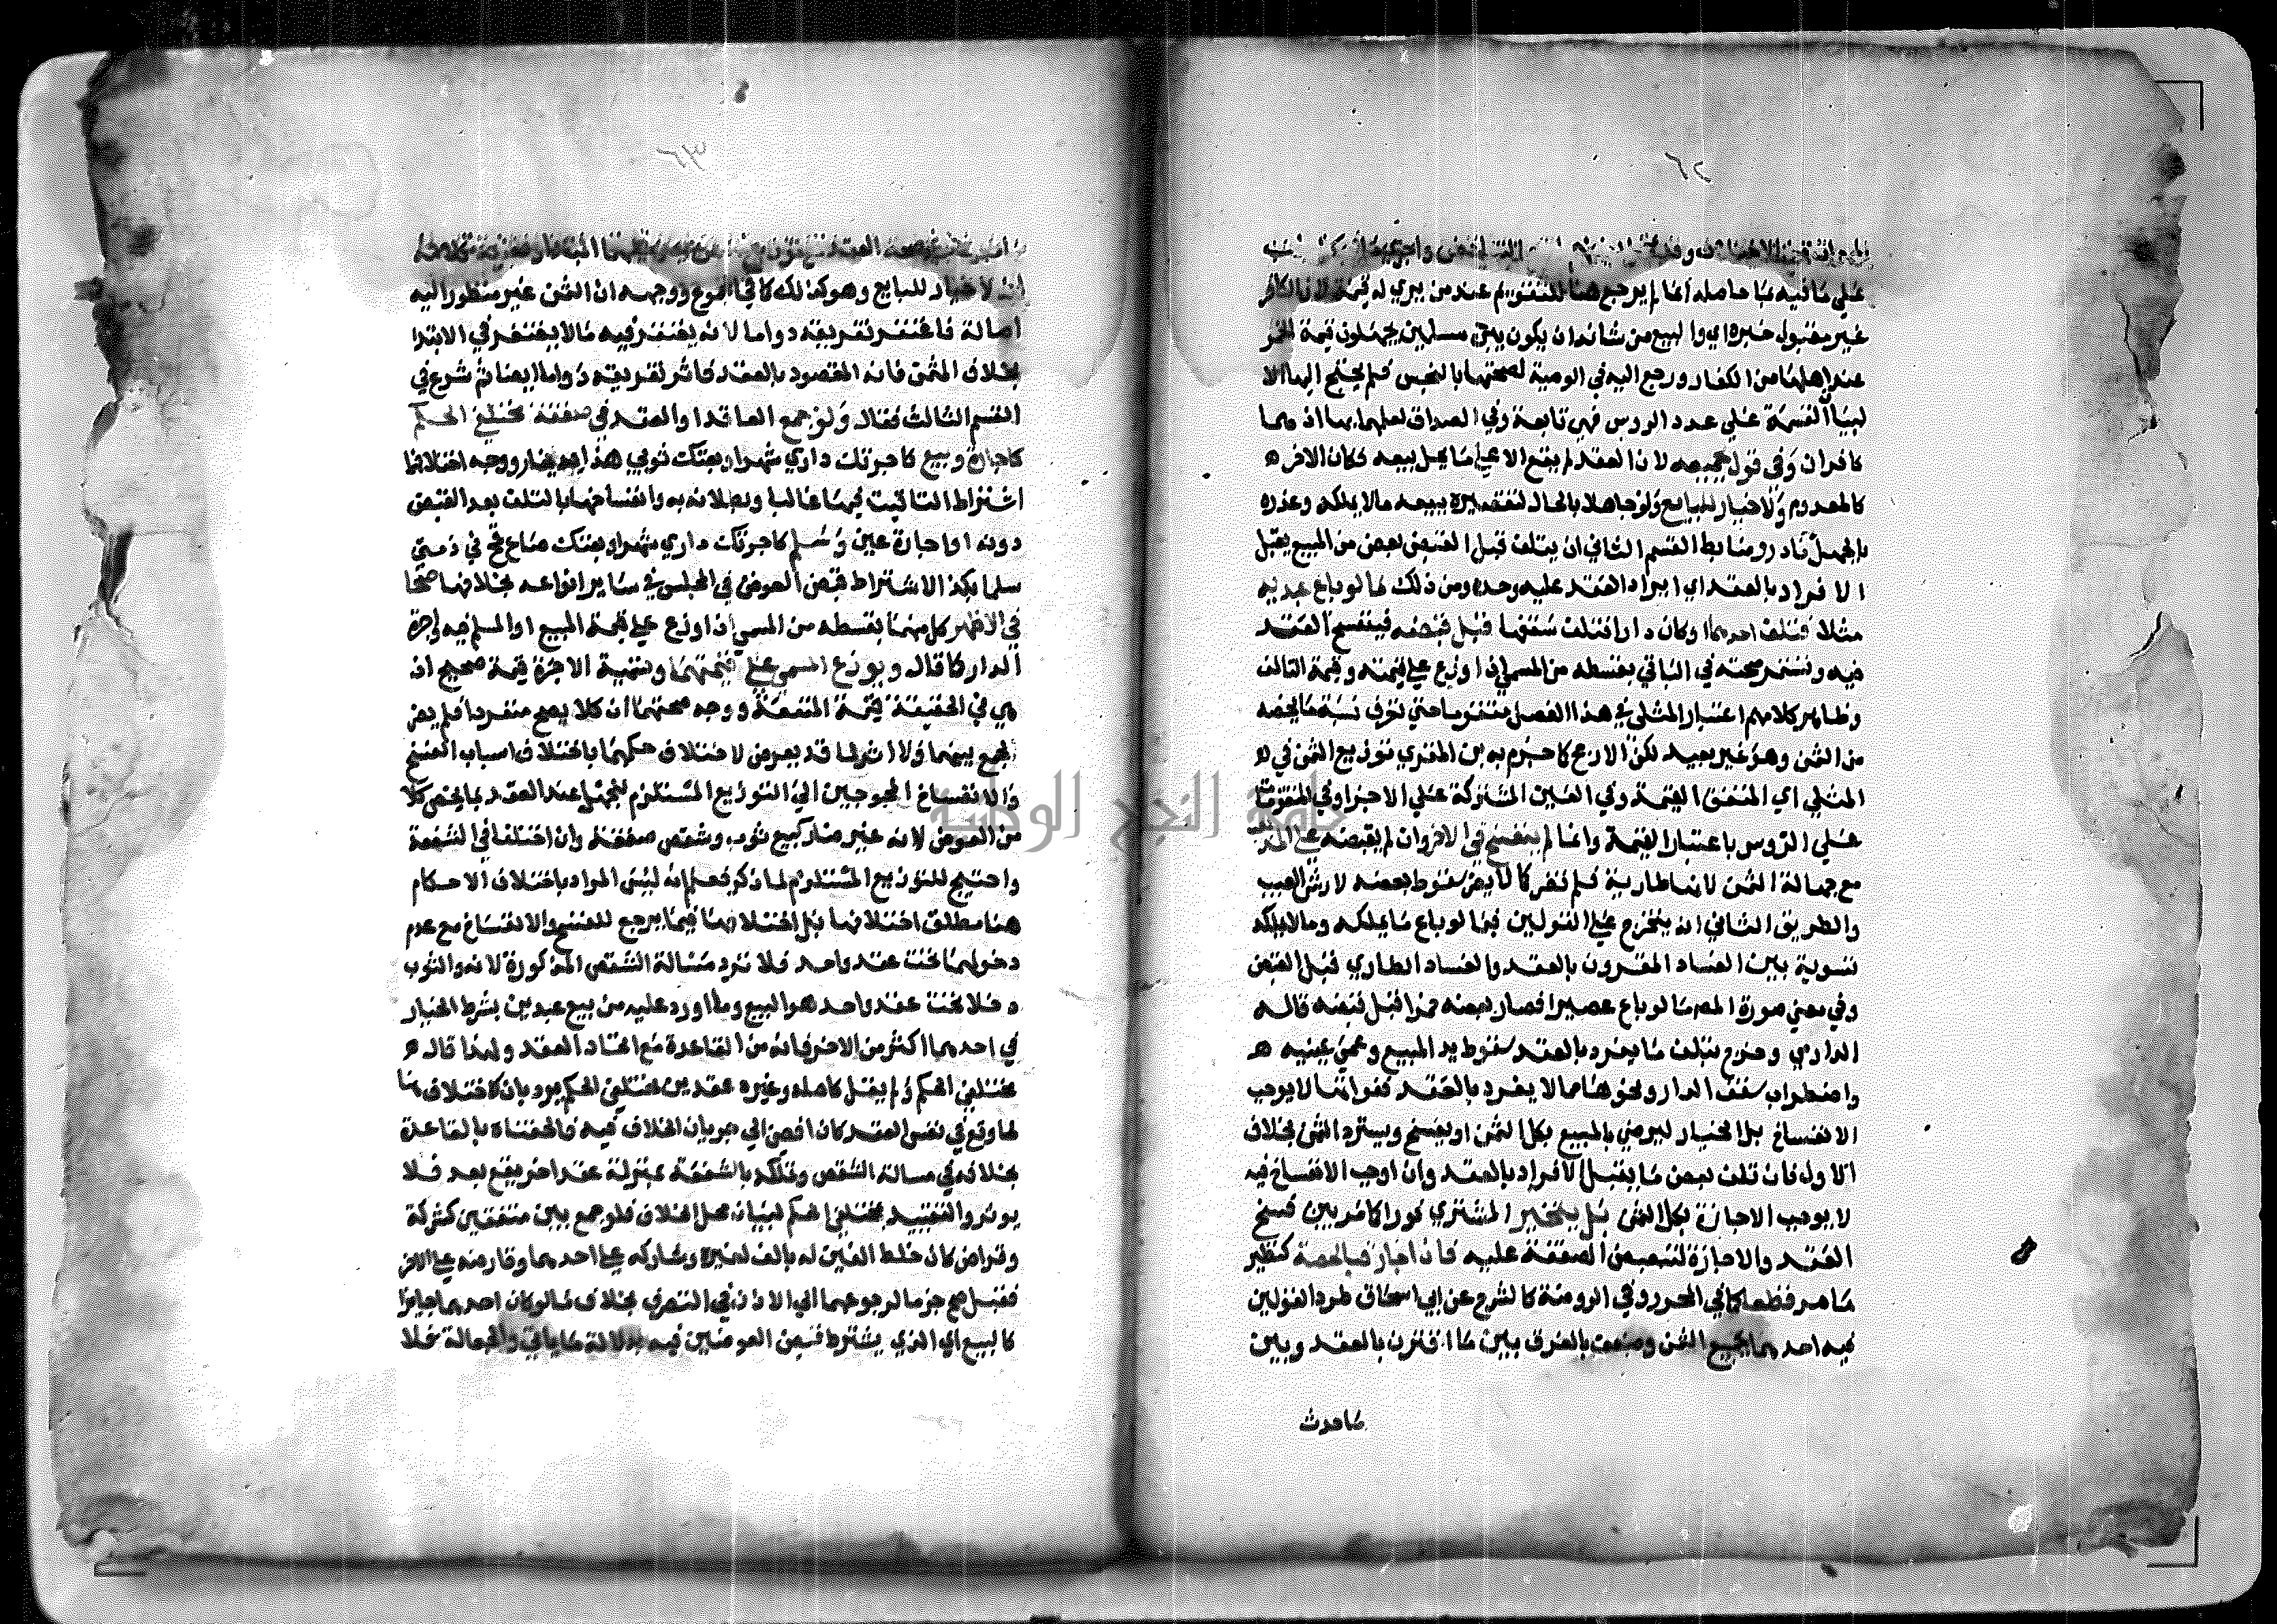 ٦٢
علي ما فيه مما حاصله انما لم يرجع هنا للتقويم عند من يري له قيمة لان الكافر
غير مقبول خبره اي والبيع من شانه ان يكون بين مسلمين يجهلون قيمة الخمر
عند اهلها من الكفار ورجع اليه في الوصية لصحتها بالنجس فلم يحتج اليها الا
لبيان القسمة علي عدد الروس فهي تابعة وفي الصداق لعلمهما بها اذ هما
كافران وفي قول جميعه لان العقد لم يقع الا علي ما يحل بيعه فكان الاخر
كالمعدوم ولا خيار للبايع ولو جاهلا بالحال لتقصيره ببيعه مالا يملكه وعذره
بالجهل نادر وضابط القسم الثاني ان يتلف قبل القبض بعض من المبيع يقبل
الافراد بالعقد اي ايراد العقد عليه وحده ومن ذلك ما لو باع عبديه
مثلا فتلف احدهما او كان دارا فتلف سقفها قبل قبضه فينفسخ العقد
فيه وتستمر صحته في الباقي بقسطه من المسمي اذا وزع علي قيمته وقيمة التالف
وظاهر كلامهم اعتبار المثلي في هذا الفصل متقوما حتي نعرف نسبة ما يخصه
من الثمن وهو غير بعيد لكن الارجح كما جزم به بن المقري توزيع الثمن في
المثلي اي المتفق القيمة وفي العين المشتركة علي الاجزا وفي المتقومات
علي الروس باعتبار القيمة وانما لم ينفسخ في الاخر وان لم يقبضه علي المذهب
مع جهالة الثمن لانها طارية فلم تضر كما لا يضر سقوط بعضه لارش العيب
والطريق الثاني انه يتخرج علي القولين فيما لو باع ما يملكه وما لا يملكه
تسوية بين الفساد المقرون بالعقد والفساد الطاري قبل القبض
وفي معني صورة المص ما لو باع عصيرا فصار بعضه خمرا قبل قبضه قاله
الدارمي وخرج بتلف ما يفرد بالعقد سقوط يد المبيع وعمي عينيه
واضطراب سقف الدار ونحوها مما لا يفرد بالعقد ففواتها لا يوجب
الانفساخ بل الخيار ليرضي بالمبيع بكل الثمن او يفسخ ويسترد الثمن بخلاف
الاول فان تلف بعض ما يقبل الافراد بالعقد وان اوجب الانفساخ فيه
لا يوجب الاجازة بكل الثمن بل يتخير المشتري فورا كما مر بين فسخ
العقد والاجازة لتبعيض الصفقة عليه فان اجاز فبالحصة كنظير
ما مر قطعا كما في المحرر وفي الروضة كالشرح عن ابي اسحاق طرد القولين
فيه احدهما بجميع الثمن وضعف بالفرق بين ما اقترن بالعقد وبين
ما حدث
٦٣
انه لا خيار للبايع وهو كذلك كما في المجموع ووجهه ان الثمن غير منظور اليه
اصالة فاغتفر تفريقه دواما لانه يغتفر فيه مالا يغتفر في الابتدا
بخلاف المثمن فانه المقصود بالعقد فاثر تفريقه دواما ايضا ثم شرع في
القسم الثالث فقال ولو جمع العاقد او العقد في صفقة مختلفي الحكم
كاجارة وبيع كاجرتك داري شهرا وبعتك ثوبي هذا بدينار ووجه اختلافهما
اشتراط التاقيت فيها غالبا وبطلانه به وانفساخها بالتلف بعد القبض
دونه او اجارة عين وسلم كاجرتك داري شهرا وبعتك صاع قمح في ذمتي
سلما بكذا لاشتراط قبض العوض في المجلس في ساير انواعه بخلافها صحا
في الاظهر كل منهما بقسطه من المسمي اذا وزع علي قيمة المبيع او المسلم فيه واجرة
الدار كما قال ويوزع المسمي علي قيمتهما وتسمية الاجرة قيمة صحيح اذ
هي في الحقيقة قيمة المنفعة ووجه صحتهما ان كلا يصح منفردا فلم يضر
الجمع بينهما ولا اثر لما قد يعرض لاختلاف حكمهما باختلاف اسباب الفسخ
والانفساخ المحوجين الي التوزيع المستلزم للجهل عند العقد بما يخص كلا
من العوض لانه غير ضار كبيع ثوب وشقص صفقة وان اختلفا في الشفعة
واحتيج للتوزيع المستلزم لما ذكر فعلم انه ليس المراد باختلاف الاحكام
هنا مطلق اختلافها بل اختلافها فيما يرجع للفسخ والانفساخ مع عدم
دخولهما تحت عقد واحد فلا ترد مسالة الشقص المذكورة لانه والثوب
دخلا تحت عقد واحد هو البيع وما اورد عليه من بيع عبدين بشرط الخيار
في احدهما اكثر من الاخر فانه من القاعدة مع اتحاد العقد ولهذا قال
مختلفي الحكم ولم يقل كاصله وغيره عقدين مختلفي الحكم يرد بان الاختلاف هنا
لما وقع في نفس العقد كان افضي الي جريان الخلاف فيه فالحقناه بالقاعدة
بخلافه في مسالة الشقص وتملكه بالشفعة بمنزلة عقد اخر يقع بعد فلا
يوثر والتقييد بمختلفي الحكم لبيان محل الخلاف فلو جمع بين متفقين كشركة
وقراض كان خلط الفين له بالف لغيره وشاركه علي احدهما وقارضه علي الاخر
فقبل صح جزما لرجوعهما الي الاذن في التصرف بخلاف ما لو كان احدهما جايزا
كالبيع اي الذي يشترط قبض العوضين فيه بدلالة ما ياتي والجعالة فلا